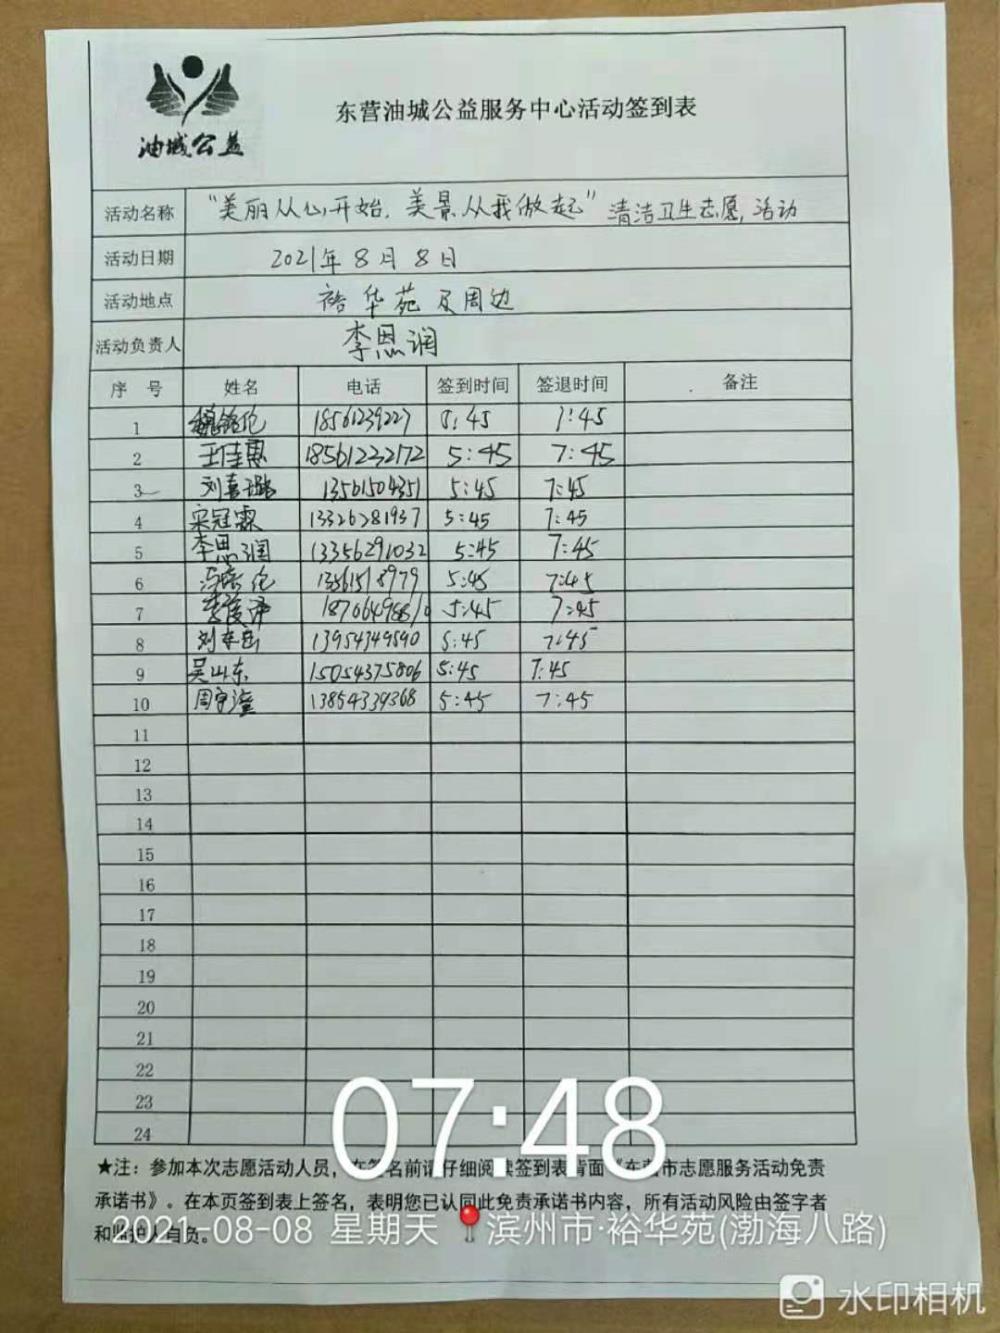 油城公益
东营油城公益服务中心活动签到表
活动名称 “美丽从心开始,美景从我做起”清洁卫生志愿活动
活动日期 2021年8月8日
活动地点 裕华苑及周边
活动负责人 李思润
序号 姓名 电话 签到时间 签退时间 备注
1 18561239227 5:45 7:45
2 王佳惠 18561232172 5:45 7:45
3 刘嘉璐 13561504351 5:45 7:45
4 宋冠霖 13326281937 5:45 7:45
5 李思润 13356291032 5:45 7:45
6 13561518979 5:45 7:45
7 5:45 7:45
8 刘东岳 13954349590 5:45 7:45
9 吴山东 15054375806 5:45 7:45
10 周宇滢 13854339368 5:45 7:45
11
12
13
14
15
16
17
18
19
20
21
22
23
24
★注:参加本次志愿活动人员,在签名前请仔细阅读签到表背面《东营市志愿服务活动免责
承诺书》。在本页签到表上签名,表明您已认同此免责承诺书内容,所有活动风险由签字者
和监护人自负。
07:48
2021-08-08 星期天 滨州市·裕华苑(渤海八路)
水印相机